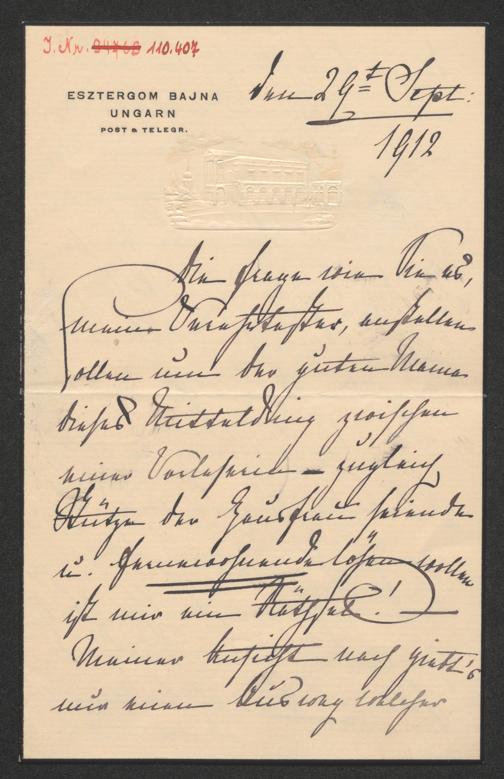 J. Nr. 110.407
ESZTERGOM BAJNA
UNGARN
POST & TELEGR.
den 29t Sept:
1912
Die Frage wie Sie es,
meine Verehrteste, anstellen
sollen um der guten Mama
dieses Mittelding zwischen
einer Vorleserin – zugleich
Stütze der Hausfrau seiende
u. fernewohnende lösen wollen
ist mir ein Räthsel!
Meiner Ansicht nach giebt's
nur einen Ausweg welcher